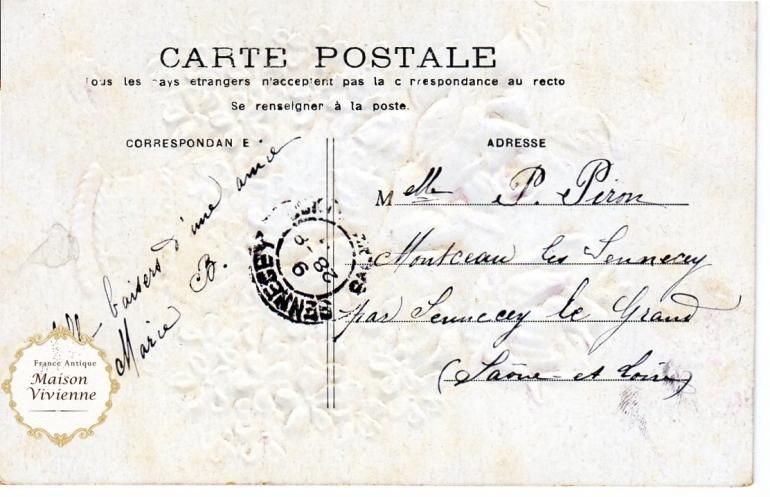 CARTE POSTALE
Tous les pays etrangers n'acceptent pas la c rrespondance au recto
Se renseigner à la poste.
CORRESPONDAN E
ADRESSE
baisers d'une amie
Marie B.
Melle P. Piron
Montceau les Sennecey
par Sennecey le Grand
(Saône et Loire)
SENNECEY
28
France Antique
Maison
Vivienne